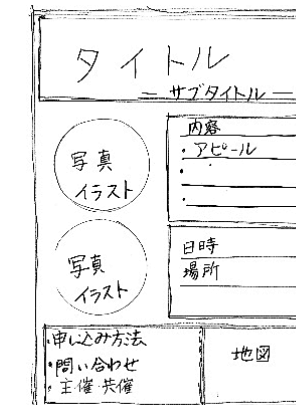 タイトル
— サブタイトル —
写真
イラスト
内容
・アピール
・
・
写真
イラスト
日時
場所
・申し込み方法
・問い合わせ
・主催・共催
地図